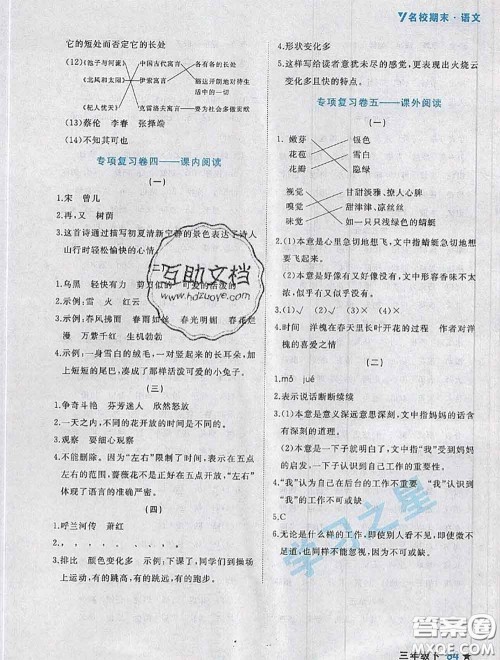 名校期末·语文
它的短处而否定它的长处
(12)《池子与河流》 中国古代寓言 各有各的好处
《北风和太阳》 伊索寓言
《杞人忧天》 克雷洛夫寓言 要为社会多做贡献
(13)蔡伦 李春 张择端
(14)不知其可也
专项复习卷四——课内阅读
(一)
1.宋 曾几
2.再,又 树荫
3.这首诗通过描写初夏清新宁静的景色表达了诗人
山行时轻松愉快的心情。
1.乌黑 轻快有力 剪刀似的 可爱的活泼的
2.示例:雷 火 红云
3.示例:春风拂面 春雨如丝 春光明媚 春花烂
漫 万紫千红 生机勃勃
4.示例:一身雪白的绒毛,一对竖起来的长耳朵,加
上短短的尾巴,凑成了那样活泼可爱的小兔子。
(三)
1.争奇斗艳 芬芳迷人 欣然怒放
2.一天之内,不同的花开放的时间是不同的。
3.观察 要细心 整合
4.不能删除。因为“左右”限制了时间,表示在五点
左右的范围,蔷薇花不是正好在五点开放,“左右”
体现了语言的准确严密。
(四)
1.呼兰河传 萧红
2., , , , , , 。
3.排比 颜色变化多 示例:下课了,同学们到操场
上运动,有的跳高,有的跳远,有的跑步。
4.形状变化多
5.这样写给读者意犹未尽的感觉,更表现了火烧云
变化多且快的特点。
专项复习卷五——课外阅读
(一)
1.嫩芽 银色
花苞 雪白
花瓣 绿色
视觉 甘甜淡雅、撩人心脾
嗅觉 甜津津,凉丝丝
味觉 如一只只浅绿色的蜻蜓
2.(1)本意是心里急切地想飞,文中指蜻蜓急切地想
要飞起来。
(2)本意是好像有又好像没有,文中形容香味不太
明显,似有似无。
3.(1)√ (2)√
4.时间 洋槐在春天里长叶开花的过程 作者对洋
槐的喜爱之情
(二)
1.mō jué
2.表示说话断断续续
3.(1)本意是意义深远意思深刻,文中指妈妈的话含
有深刻的道理。
(2)本意是一下子明白或醒悟了,文中指受到妈妈
的启发,一下子认识到自己工作的重要性。
4.“我”认为自己在后台的工作不可或缺 “我”认识到
“我”的工作不可或缺
5.C
6.无论是什么样的工作,即使你的工作看起来微不
足道,也同样不能忽视,因为它同样不可或缺。
互助文档
www.hdzuoye.com
学习之星
答案圈
MXQE.COM
三年级下 84 ★